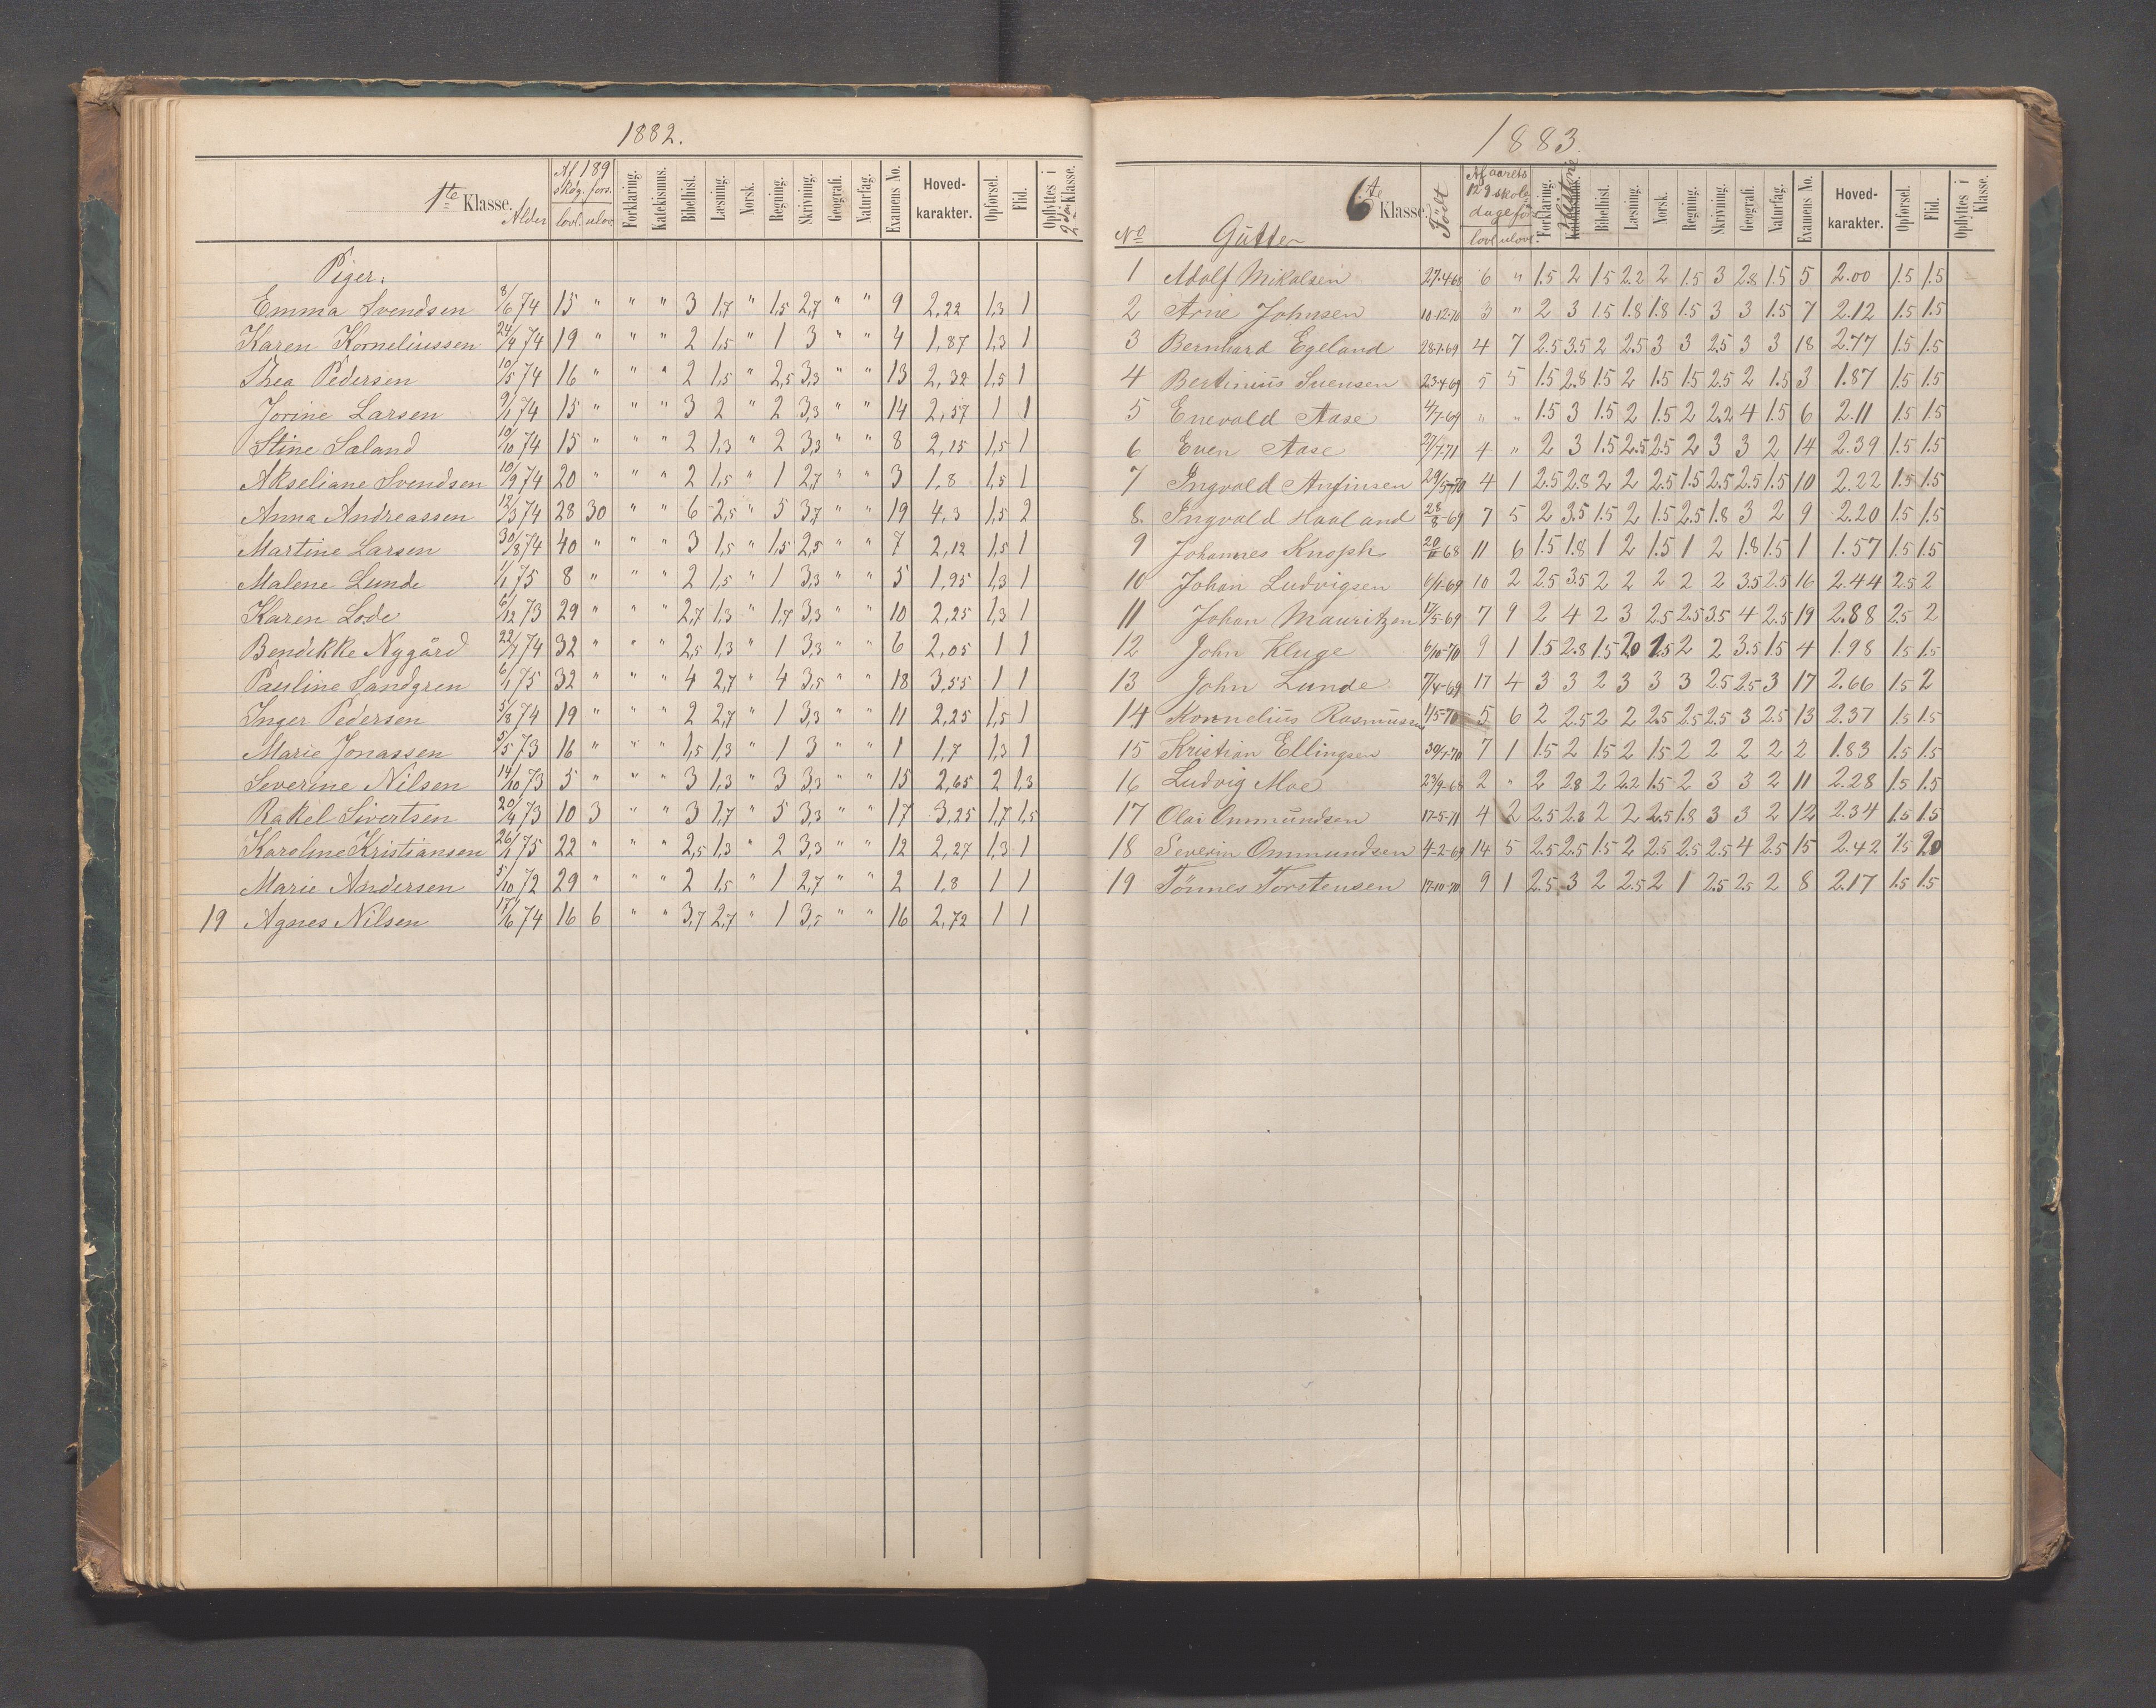 1882.
1te Klasse. Alder Af 189 skdg. fors. lovl. ulov. Forklaring. Katekismus. Bibelhist. Læsning. Norsk. Regning. Skrivning. Geografi. Naturfag. Examens No. Hoved-karakter. Opførsel. Flid. Opflyttes i 2den Klasse.
Piger:
Emma Svendsen 8/6 74 15 " " " 3 1,7 " 1,5 2,7 " " 9 2,22 1,3 1
Karen Korneliussen 24/9 74 19 " " " 2 1,5 " 1 3 " " 4 1,87 1,3 1
Thea Pedersen 10/5 74 16 " " " 2 1,5 " 2,5 3,3 " " 13 2,32 1,5 1
Jorine Larsen 9/1 74 15 " " " 3 2 " 2 3,3 " " 14 2,57 1 1
Stine Saland 10/10 74 15 " " " 2 1,3 " 2 3,3 " " 8 2,15 1,5 1
Akseliane Svendsen 10/9 74 20 " " " 2 1,5 " 1 2,7 " " 3 1,8 1,5 1
Anna Andreassen 12/3 74 28 30 " " 6 2,5 " 5 3,7 " " 19 4,3 1,5 2
Martine Larsen 30/8 74 40 " " " 3 1,5 " 1,5 2,5 " " 7 2,12 1,5 1
Malene Lunde 1/1 75 8 " " " 2 1,5 " 1 3,3 " " 5 1,95 1,3 1
Karen Lode 6/12 73 29 " " " 2,7 1,3 " 1,7 3,3 " " 10 2,25 1,3 1
Bendikke Nygård 22/7 74 32 " " " 2,5 1,3 " 1 3,3 " " 6 2,05 1 1
Pauline Sandgren 6/1 75 32 " " " 4 2,7 " 4 3,5 " " 18 3,55 1 1
Inger Pedersen 5/8 74 19 " " " 2 2,7 " 1 3,3 " " 11 2,25 1,5 1
Marie Jonassen 5/5 73 16 " " " 1,5 1,3 " 1 3 " " 1 1,7 1,3 1
Severine Nilsen 14/10 73 5 " " " 3 1,3 " 3 3,3 " " 15 2,65 2 1,3
Rakel Sivertsen 20/4 73 10 3 " " 3 1,7 " 5 3,3 " " 17 3,25 1,7 1,5
Karoline Kristiansen 26/1 75 22 " " " 2,5 1,3 " 2 3,3 " " 12 2,27 1,3 1
Marie Andersen 5/10 72 29 " " " 2 1,5 " 1 2,7 " " 2 1,8 1 1
19 Agnes Nilsen 17/6 74 16 6 " " 3,7 2,7 " 1 3,5 " " 16 2,72 1 1
1883.
No Gutter 6te Klasse. Født Af aarets 129 skoledage fors. lovl. ulovl. Forklaring. Katekismus. Historie Bibelhist. Læsning. Norsk. Regning. Skrivning. Geografi. Naturfag. Examens No. Hoved-karakter. Opførsel. Flid. Opflyttes i Klasse.
1 Adolf Mikalsen 27-4-68 6 " 1.5 2 1.5 2.2 2 1.5 3 2.8 1.5 5 2.00 1.5 1.5
2 Arne Johnsen 10-12-70 3 " 2 3 1.5 1.8 1.8 1.5 3 3 1.5 7 2.12 1.5 1.5
3 Bernhard Egeland 28-7-69 4 7 2.5 3.5 2 2.5 3 3 2.5 3 3 18 2.77 1.5 1.5
4 Bertinius Svensen 23-4-69 5 5 1.5 2.8 1.5 2 1.5 1.5 2.5 2 1.5 3 1.87 1.5 1.5
5 Enevald Aase 4/7-69 " " 1.5 3 1.5 2 1.5 2 2.2 4 1.5 6 2.11 1.5 1.5
6 Even Aase 27/7-71 4 " 2 3 1.5 2.5 2.5 2 3 3 2 14 2.39 1.5 1.5
7 Ingvald Anfinsen 29/5-70 4 1 2.5 2.8 2 2 2.5 1.5 2.5 2.5 1.5 10 2.22 1.5 1.5
8. Ingvald Haaland 28/8-69 7 5 2 3.5 1.5 2 1.5 2.5 1.8 3 2 9 2.20 1.5 1.5
9 Johannes Knoph 20/11 68 11 6 1.5 1.8 1 2 1.5 1 2 1.8 1.5 1 1.57 1.5 1.5
10 Johan Ludvigsen 6/1-69 10 2 2.5 3.5 2 2 2 2 2 3.5 2.5 16 2.44 2.5 2
11 Johan Mauritzen 17/5-69 7 9 2 4 2 3 2.5 2.5 3.5 4 2.5 19 2.88 2.5 2
12 John Kluge 6/10-70 9 1 1.5 2.8 1.5 2.0 1.5 2 2 3.5 1.5 4 1.98 1.5 1.5
13 John Lunde 7/4-69 17 4 3 3 2 3 3 3 2.5 2.5 3 17 2.66 1.5 2
14 Kornelius Rasmussen 1/5-70 5 6 2 2.5 2 2 2.5 2.5 2.5 3 2.5 13 2.37 1.5 1.5
15 Kristian Ellingsen 30/7-70 7 1 1.5 2 1.5 2 1.5 2 2 2 2 2 1.83 1.5 1.5
16 Ludvig Moe 23/9-68 2 " 2 2.8 2 2.2 1.5 2 3 3 2 11 2.28 1.5 1.5
17 Olai Ommundsen 17-5-71 4 2 2.5 2.3 2 2 2.5 1.8 3 3 2 12 2.34 1.5 1.5
18 Severin Ommundsen 4-2-69 14 5 2.5 2.5 1.5 2 2.5 2.5 2.5 4 2.5 15 2.42 1.5 2.0
19 Tønnes Torstensen 17-10-70 9 1 2.5 3 2 2.5 2 1 2.5 2.5 2 8 2.17 1.5 1.5